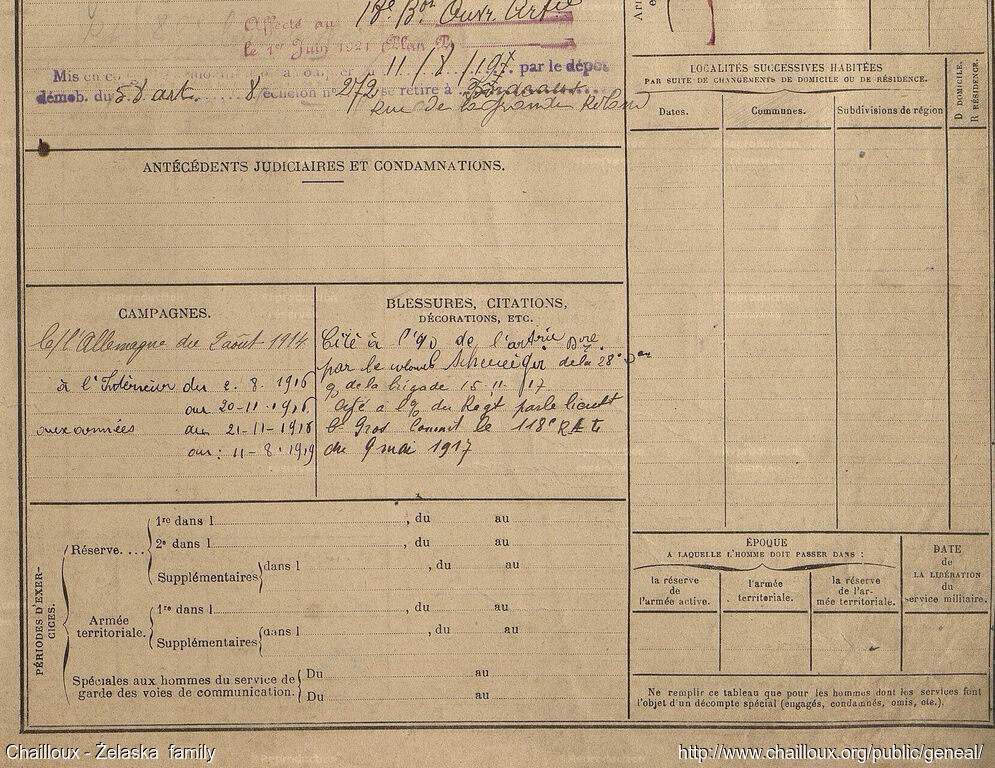 Affecté au 18e Bon Ouvr. Artie
le 1er Juin 1921 (Plan P)
Mis en co 11/8/197. par le dépôt
démob. du 58 art 8 échelon n° 272 se retire à Bordeaux
rue de la grande
ANTÉCÉDENTS JUDICIAIRES ET CONDAMNATIONS.
CAMPAGNES.
c/l'Allemagne du 2 août 1914
à l'Intérieur du 2. 8. 1916
au 20-11-1916
aux armées du 21-11-1916
au : 11-8-1919
BLESSURES, CITATIONS,
DÉCORATIONS, ETC.
Cité à l'%o de l'artrie Dre.
par le colonel de la 28e
%o de la brigade 15 11 17
Cité à l'%o du Regt par le lieut
Cl Gros Commt le 118e RAL
du 9 mai 1917
PÉRIODES D'EXERCICES.
Réserve....
1re dans l , du au
2e dans l , du au
Supplémentaires dans l , du au
Armée
territoriale.
1re dans l , du au
Supplémentaires dans l , du au
Spéciales aux hommes du service de
garde des voies de communication.
Du au
Du au
LOCALITÉS SUCCESSIVES HABITÉES
PAR SUITE DE CHANGEMENTS DE DOMICILE OU DE RÉSIDENCE.
Dates.
Communes.
Subdivisions de région
D DOMICILE,
R RÉSIDENCE.
ÉPOQUE
A LAQUELLE L'HOMME DOIT PASSER DANS :
la réserve
de
l'armée active.
l'armée
territoriale.
la réserve
de l'ar-
mée territoriale.
DATE
de
LA LIBÉRATION
du
service militaire.
Ne remplir ce tableau que pour les hommes dont les services font
l'objet d'un décompte spécial (engagés, condamnés, omis, etc.).
Chailloux - Želaska family
http://www.chailloux.org/public/geneal/